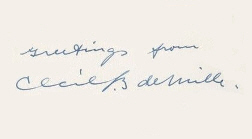 Greetings from
Cecil B deMille.